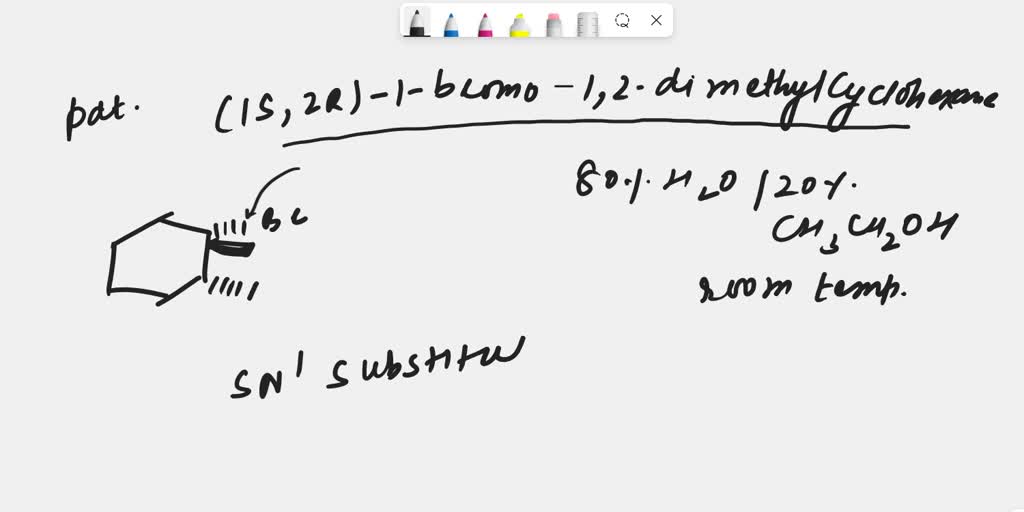 pat.
(1S, 2R)-1-bromo-1,2-dimethylcyclohexane
80% H2O / 20%
CH3CH2OH
room temp.
Br
SN1